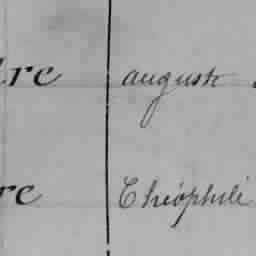 re auguste
re Théophile